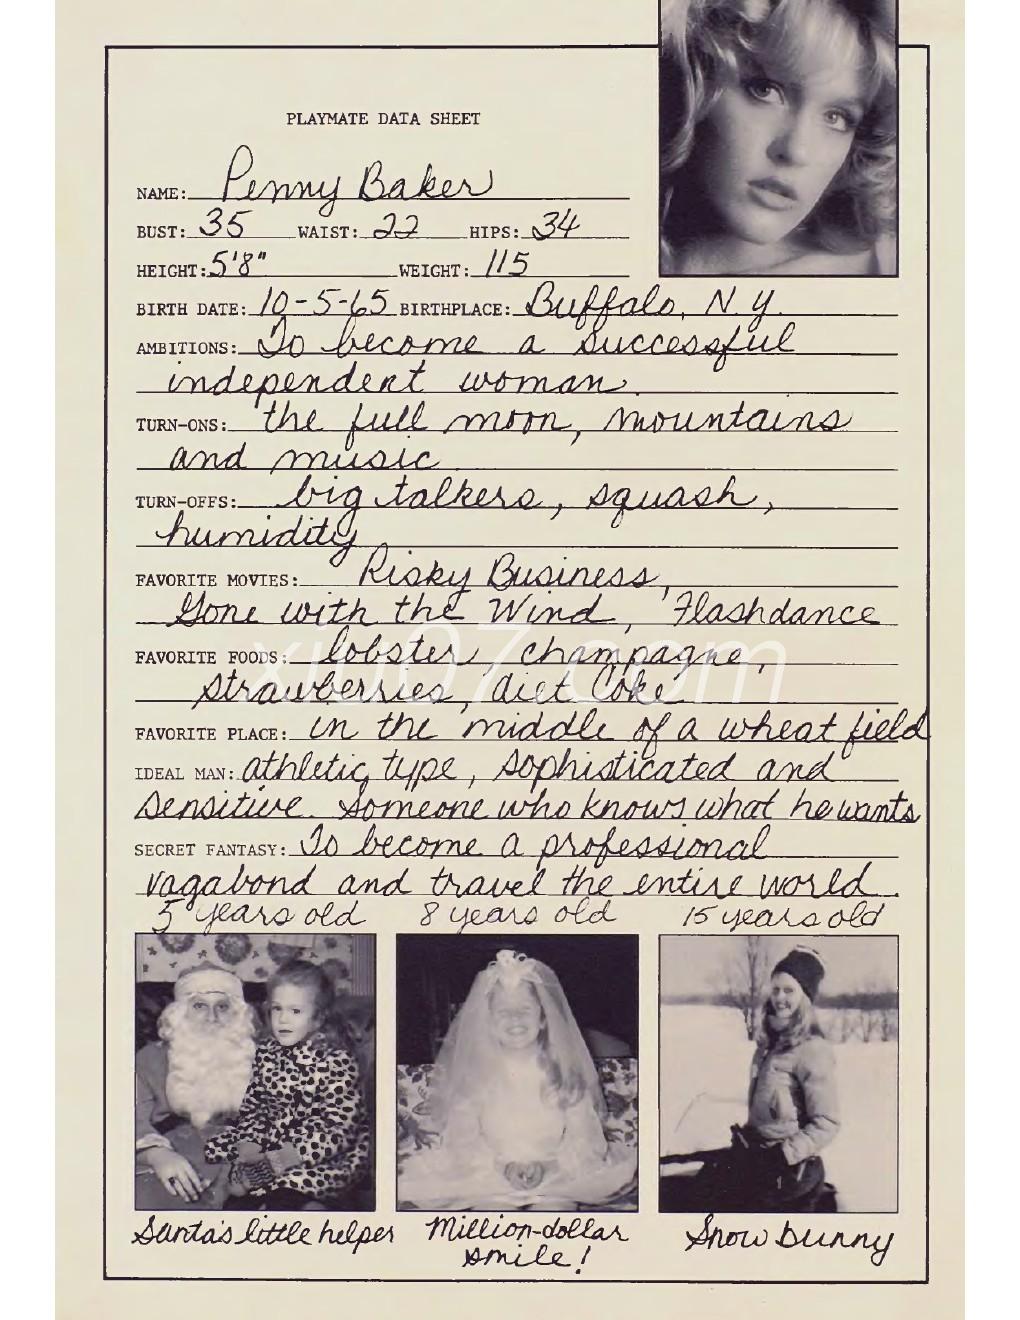 PLAYMATE DATA SHEET
NAME: Penny Baker
BUST: 35 WAIST: 22 HIPS: 34
HEIGHT: 5'8" WEIGHT: 115
BIRTH DATE: 10-5-65 BIRTHPLACE: Buffalo, N.Y.
AMBITIONS: To become a successful
independent woman.
TURN-ONS: the full moon, mountains
and music
TURN-OFFS: big talkers, squash,
humidity
FAVORITE MOVIES: Risky Business,
Gone with the Wind, Flashdance
FAVORITE FOODS: lobster, champagne,
strawberries, diet Coke
xiu07.com
FAVORITE PLACE: in the middle of a wheat field
IDEAL MAN: athletic type, sophisticated and
sensitive. Someone who knows what he wants
SECRET FANTASY: To become a professional
vagabond and travel the entire world.
5 years old 8 years old 15 years old
Santa's little helper Million-dollar Snow bunny
smile!